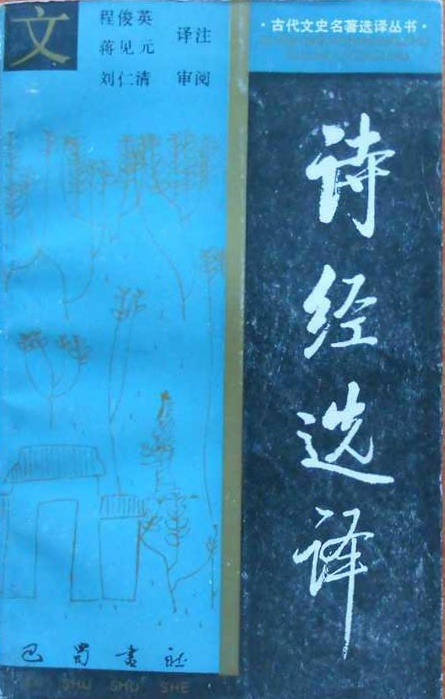 文
程俊英
蒋见元 译注
刘仁清 审阅
·古代文史名著选译丛书·
诗经选译
巴蜀书社
BA SHU SHU SHE